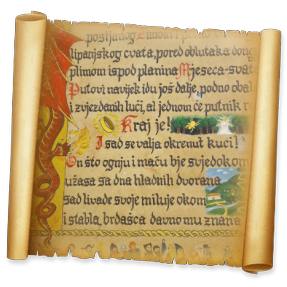 lipanjskog cvata, pored oblutaka
plimom ispod planina Mjeseca-svata
Putovi navijek idu još dalje, podno
i zvjezdanih luči, al jednom će putnik
Kraj je!
I sad se valja okrenut kući!
On što ognju i maču bje svjedokom
užasa sa dna hladnih dvorana
sad livade svoje miluje okom
i stabla, brdašca davno mu znana